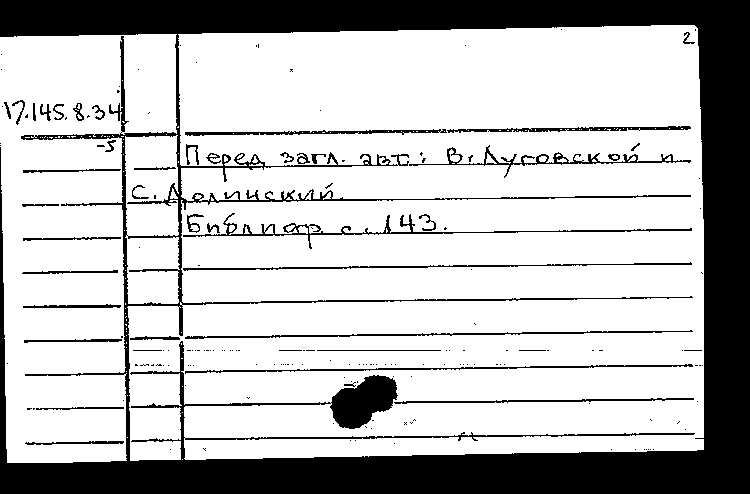 2
17.145.8.34
-5
Перед загл. авт.: В. Луговской и
С. Долинский.
Библиогр с. 143.